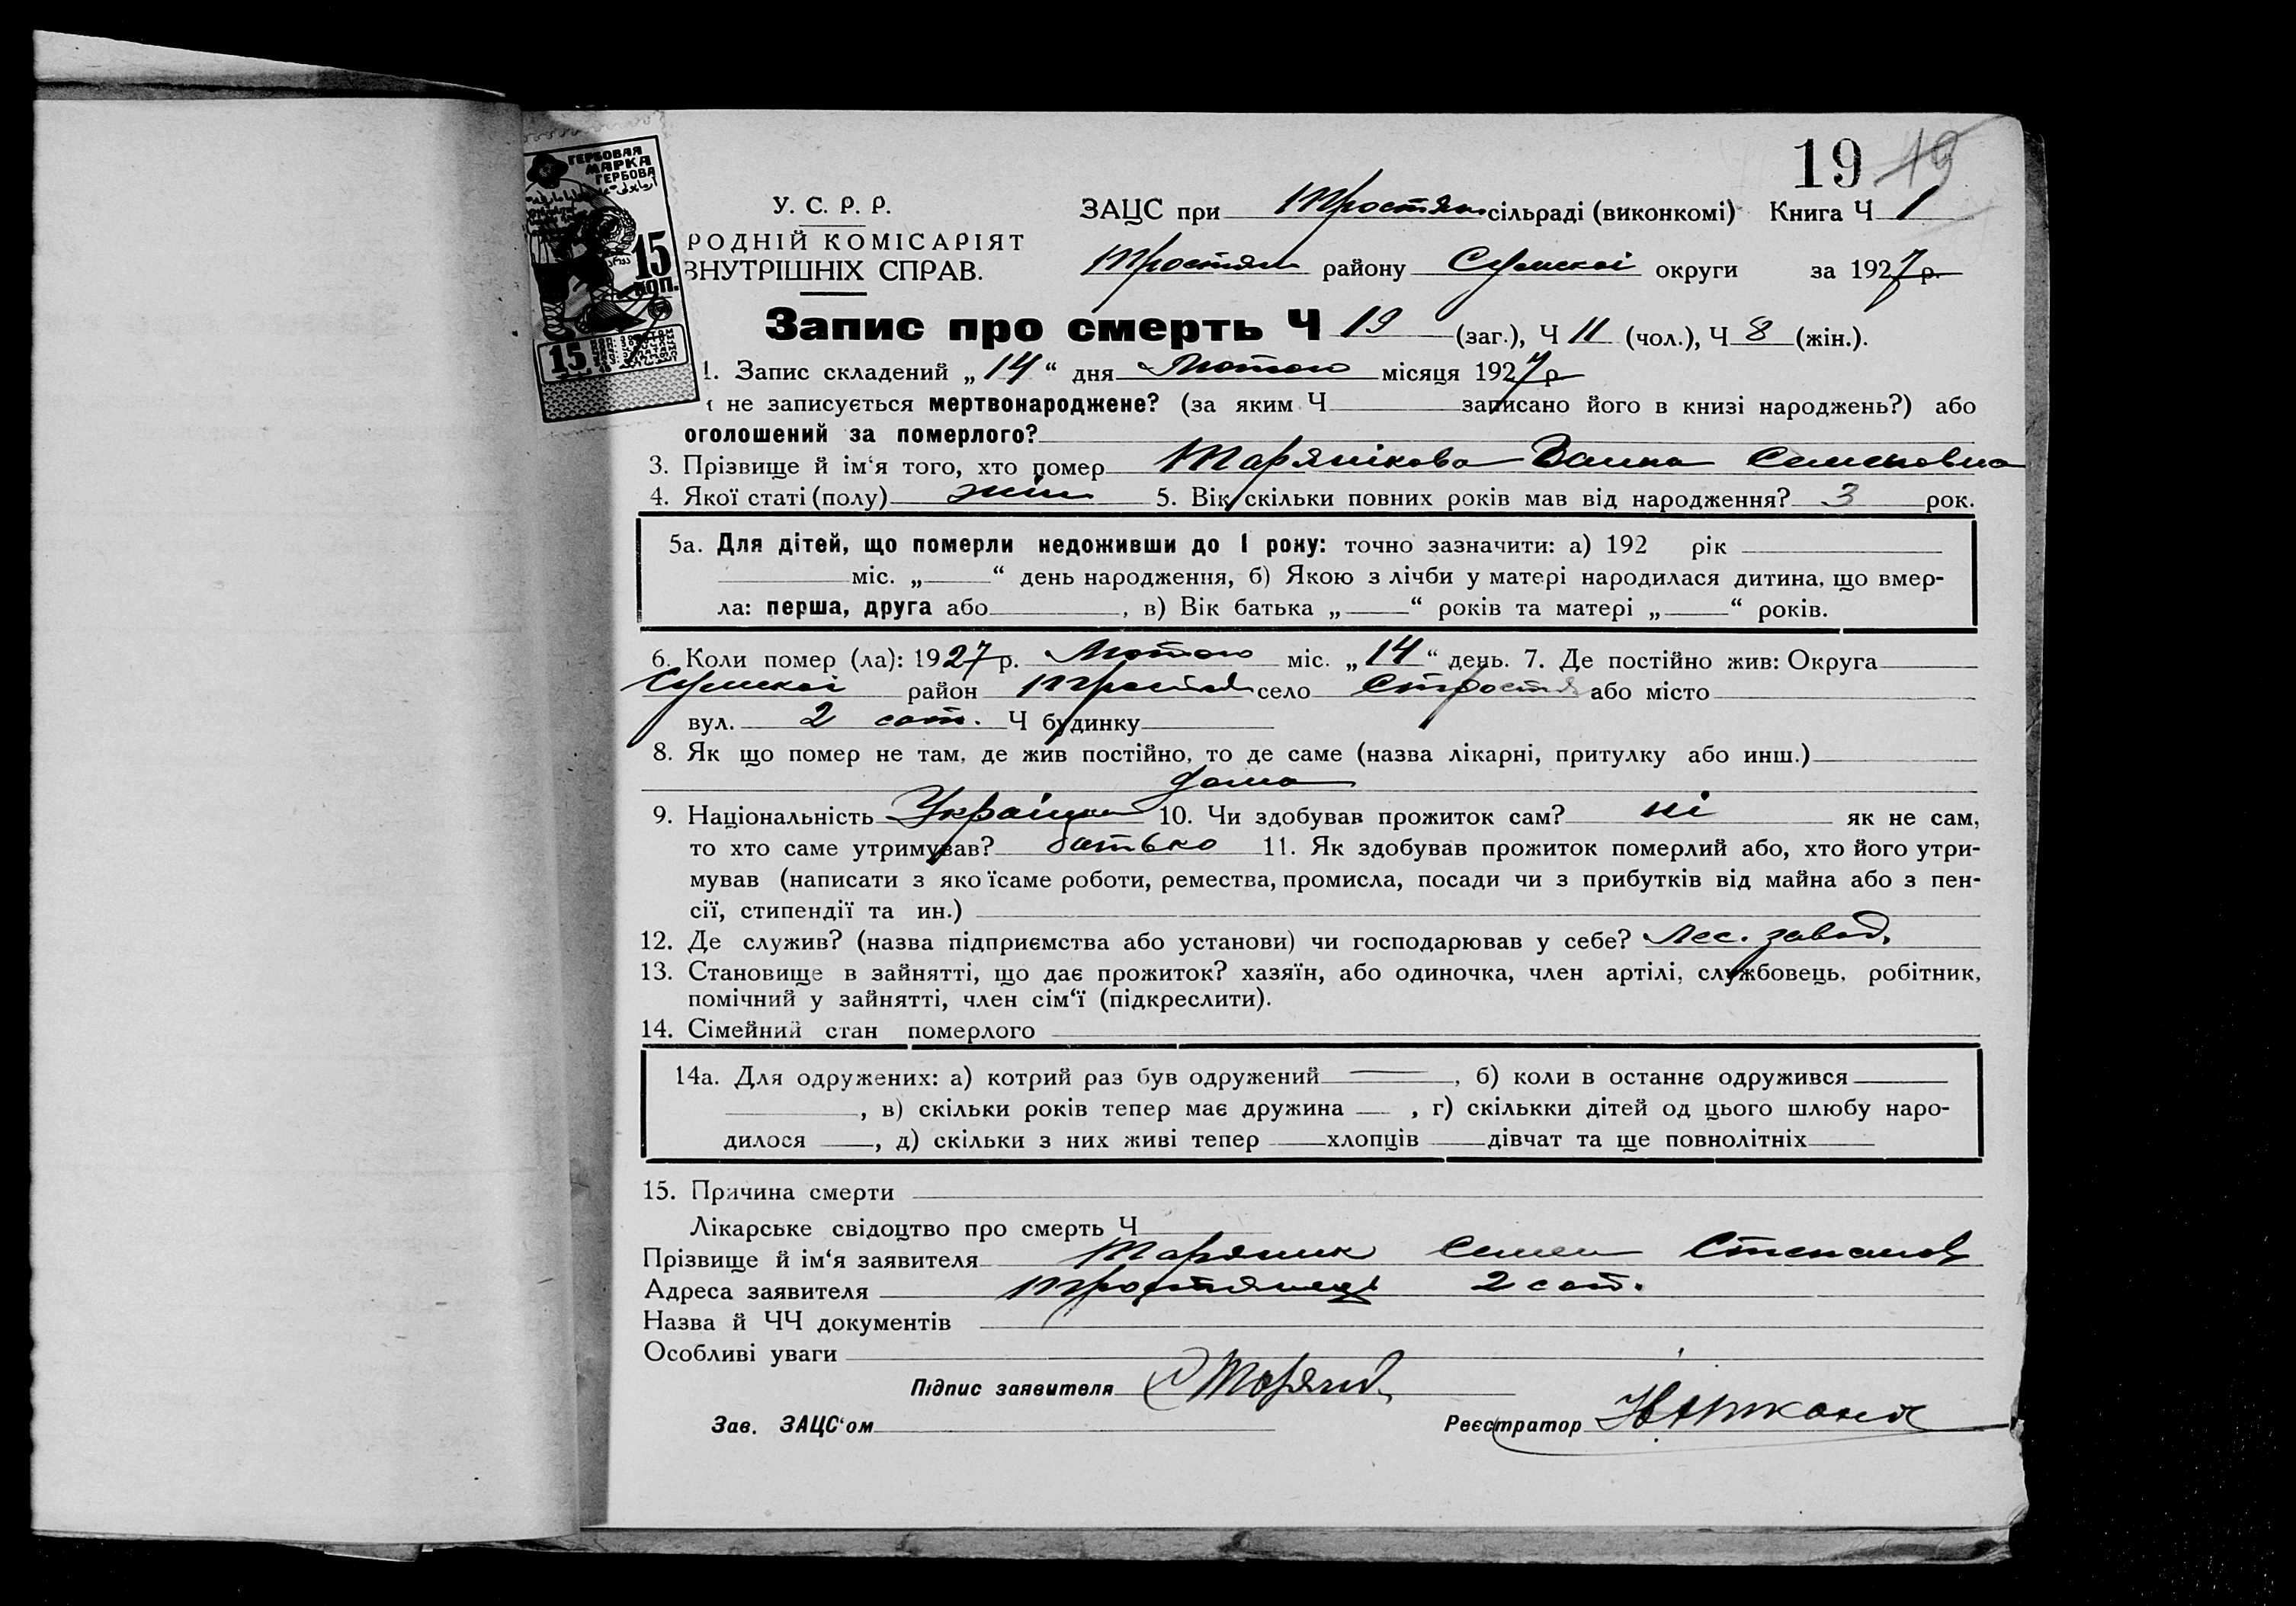 19 19
ГЕРБОВАЯ
МАРКА
ГЕРБОВА
15
КОП.
15
У. С. Р. Р.
РОДНІЙ КОМІСАРІЯТ
ВНУТРІШНІХ СПРАВ.
ЗАЦС при Тростян. сільраді (виконкомі) Книга Ч 1
Тростян району Сумскоі округи за 1927 р.
Запис про смерть Ч 19 (заг.), Ч 11 (чол.), Ч 8 (жін.).
1. Запис складений „14“ дня Лютого місяця 1927 р
не записується мертвонароджене? (за яким Ч записано його в книзі народжень?) або
оголошений за померлого?
3. Прізвище й ім‘я того, хто помер Тарянікова Ганна Семеновна
4. Якої статі (полу) жін 5. Вік скільки повних років мав від народження? 3 рок.
5а. Для дітей, що померли недоживши до 1 року: точно зазначити: а) 192 рік
міс. „ “ день народження, б) Якою з лічби у матері народилася дитина, що вмер-
ла: перша, друга або , в) Вік батька „ “ років та матері „ “ років.
6. Коли помер (ла): 1927 р. Лютого міс. „14“ день. 7. Де постійно жив: Округа
Сумскоі район Тростя село Стростя або місто
вул. 2 сот. Ч будинку
8. Як що помер не там, де жив постійно, то де саме (назва лікарні, притулку або инш.)
дома
9. Національність Українка 10. Чи здобував прожиток сам? ні як не сам,
то хто саме утримував? батько 11. Як здобував прожиток померлий або, хто його утри-
мував (написати з якоїсаме роботи, ремества, промисла, посади чи з прибутків від майна або з пен-
сії, стипендії та ин.)
12. Де служив? (назва підприємства або установи) чи господарював у себе? Лес. завод.
13. Становище в зайнятті, що дає прожиток? хазяїн, або одиночка, член артілі, службовець, робітник,
помічний у зайнятті, член сім‘ї (підкреслити).
14. Сімейний стан померлого
14а. Для одружених: а) котрий раз був одружений , б) коли в останнє одружився
, в) скільки років тепер має дружина , г) скількки дітей од цього шлюбу наро-
дилося , д) скільки з них живі тепер хлопців дівчат та ще повнолітніх
15. Причина смерти
Лікарське свідоцтво про смерть Ч
Прізвище й ім‘я заявителя Таряник Семен Степанов
Адреса заявителя Тростянець 2 сот.
Назва й ЧЧ документів
Особливі уваги
Підпис заявителя
Зав. ЗАЦС‘ом Реєстратор